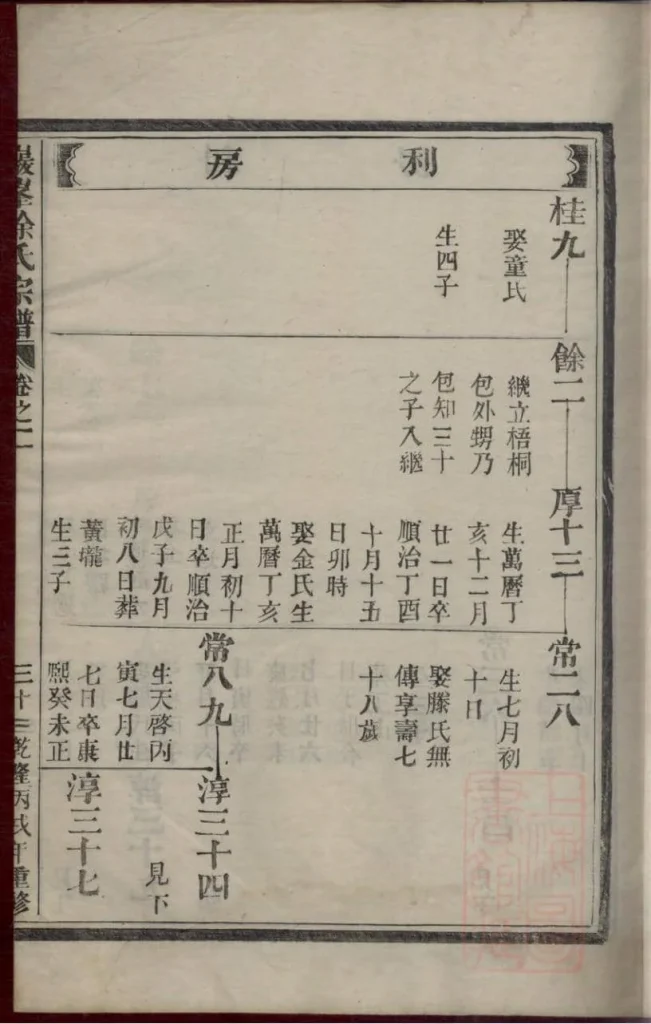 利房
桂九
娶童氏
生四子
餘二
繼立梧桐
包外甥乃
包知三十
之子入繼
厚十三
生萬曆丁
亥十二月
廿一日卒
順治丁酉
十月十五
日卯時
娶金氏生
萬曆丁亥
正月初十
日卒順治
戊子九月
初八日葬
黃壠
生三子
常二八
生七月初
十日
娶滕氏無
傳享壽七
十八歲
常八九
生天啓丙
寅七月廿
七日卒康
熙癸未正
淳三十四
見下
淳三十七
巖峯徐氏宗譜
卷之
三十二
乾隆丙戌年重修